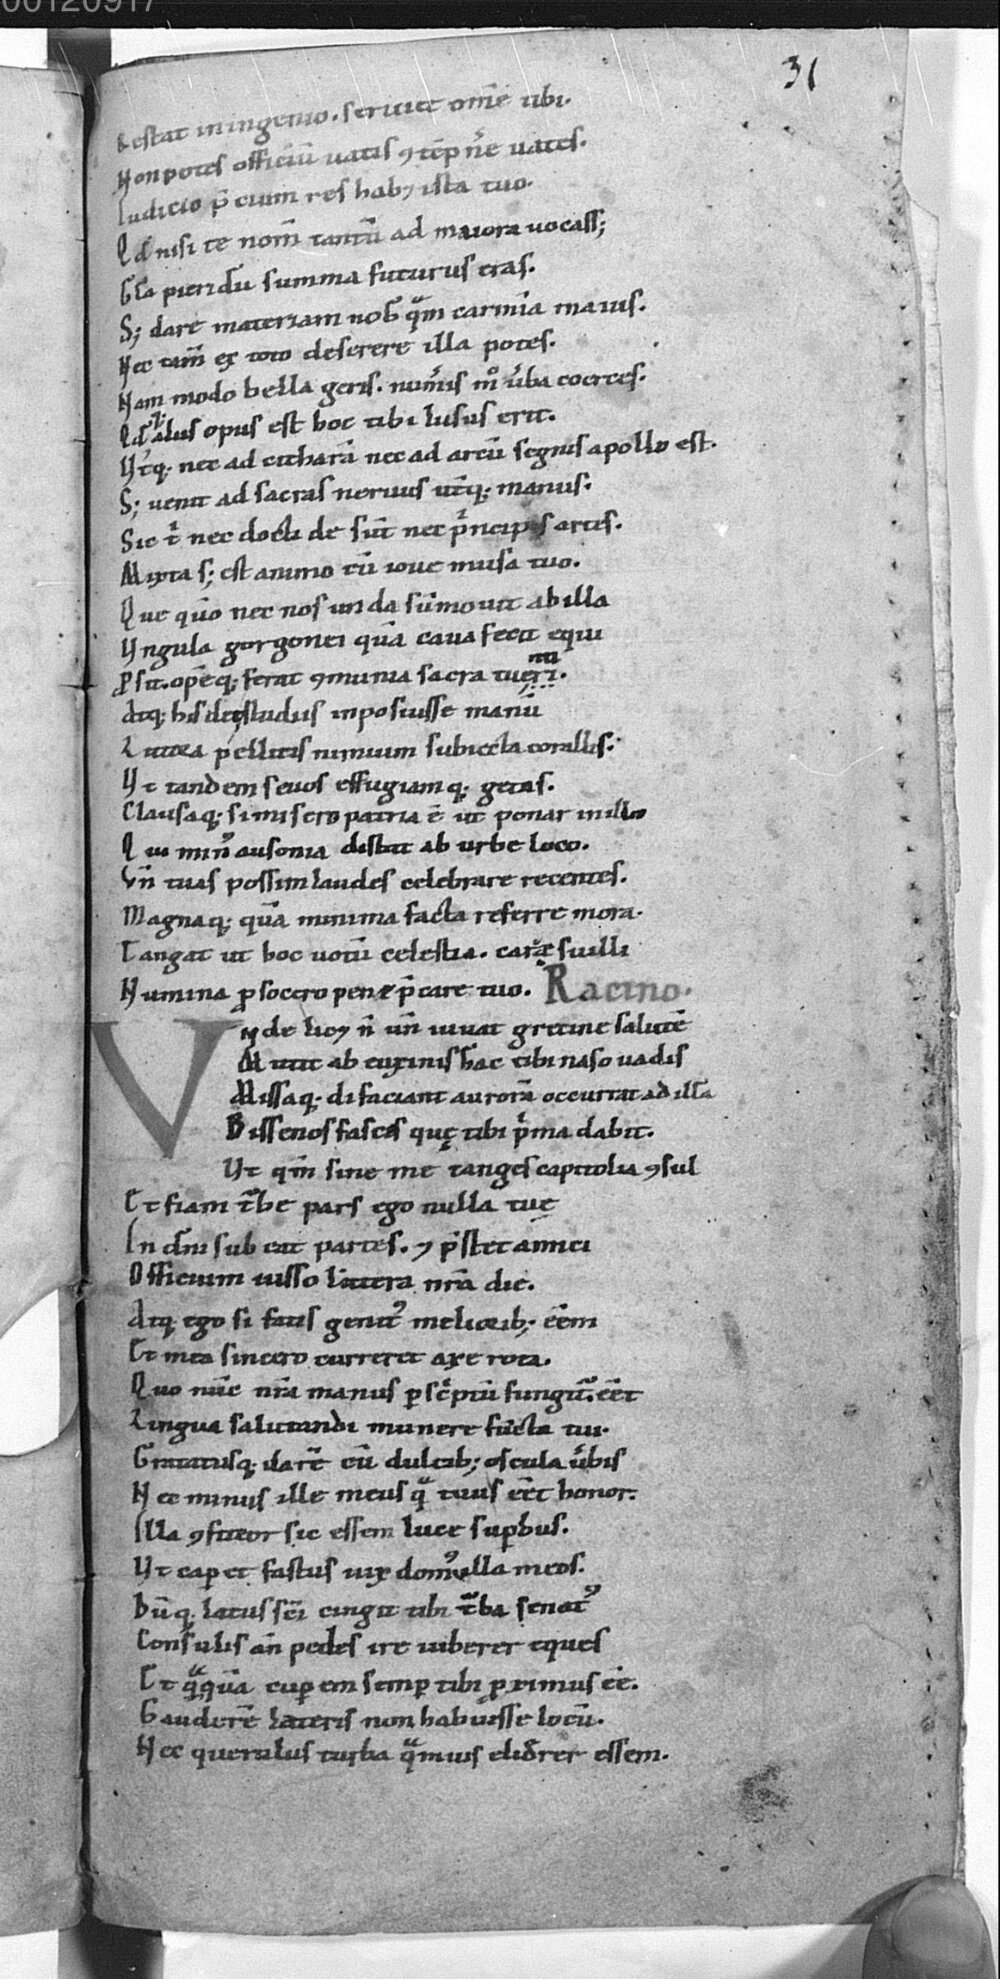 00120917
31
& estat in ingenio. seruiet om̄e tibi.
Non potes officiū uatis ꝯtēpn̄e uates.
Iudicio p̄cium res habꝫ ista tuo.
Qd̄ nisi te nom̄ tantū ad maiora uocass;
Gl̄a pieridū summa futurus eras.
S; dare materiam nob̄ qͣm carmīa maius.
Nec tam̄ ex toto deserere illa potes.
Nam modo bella geris. num̄is m̊ ūba coerces.
Qd̄ aliis opus est hoc tibi lusus erit.
Vtq; nec ad citharā nec ad arcū segnis apollo est.
S; uenit ad sacras neruus utq; manus.
Sic t̄ nec docti de sūt nec pͥncipis artis.
Mixta s; est animo cū ioue musa tuo.
Que qm̄o nec nos unda sūmouit ab illa
Vngula gorgonei quā caua fecit equi
ꝓsit. opēq; ferat ꝯmunia sacra tueri.
Atq; hisdē studiis inposuisse manū
Littora pellitis nimium subiecta corallis.
Vt tandem seuos effugiamq; getas.
Clausaq; si misero patria ē ut ponar in illo
Qui minꝰ ausonia distat ab urbe loco.
Vn̄ tuas possim laudes celebrare recentes.
Magnaq; quā minima facta referre mora.
Tangat ut hoc uotū celestia. care suilli
Numina ꝓ socero pene p̄care tuo. Racino.
Vnde licꝫ n̄ un̄ iuuat grecine salutē
Mittit ab euxinis hac tibi naso uadis
Missaq; di faciant aurorā occurrat ad illā
Bissenos fasces quę tibi pͥma dabit.
Vt qm̄ sine me tanges capitolia ꝯsul
Et fiam tͬbe pars ego nulla tuę
In dn̄i sub eat partes. ⁊ p̄stet amici
Officium iusso littera nr̄a die.
Atq; ego si fatis genitꝰ meliorib; eēm
Et mea sincero curreret axe rota.
Quo nūc nr̄a manus ꝑ scͥptū fungitͬ eēt
Lingua salutandi munere fūcta tui.
Gratatusq; darē cū dulcib; oscula ūbis
Nec minus ille meus qͣ tuus eēt honor.
Illa ꝯfiteor sic essem luce supbus.
Vt caperet fastus uix domꝰ ulla meos.
Dūq; latus scī cingit tibi tͬba senatꝰ
Consulis añ pedes ire iuberer eques
Et qͣqͣm cuperem semp tibi proximus eē.
Gauderē lateris non habuisse locū.
Nec querulus turba qͣmuis eliderer essem.